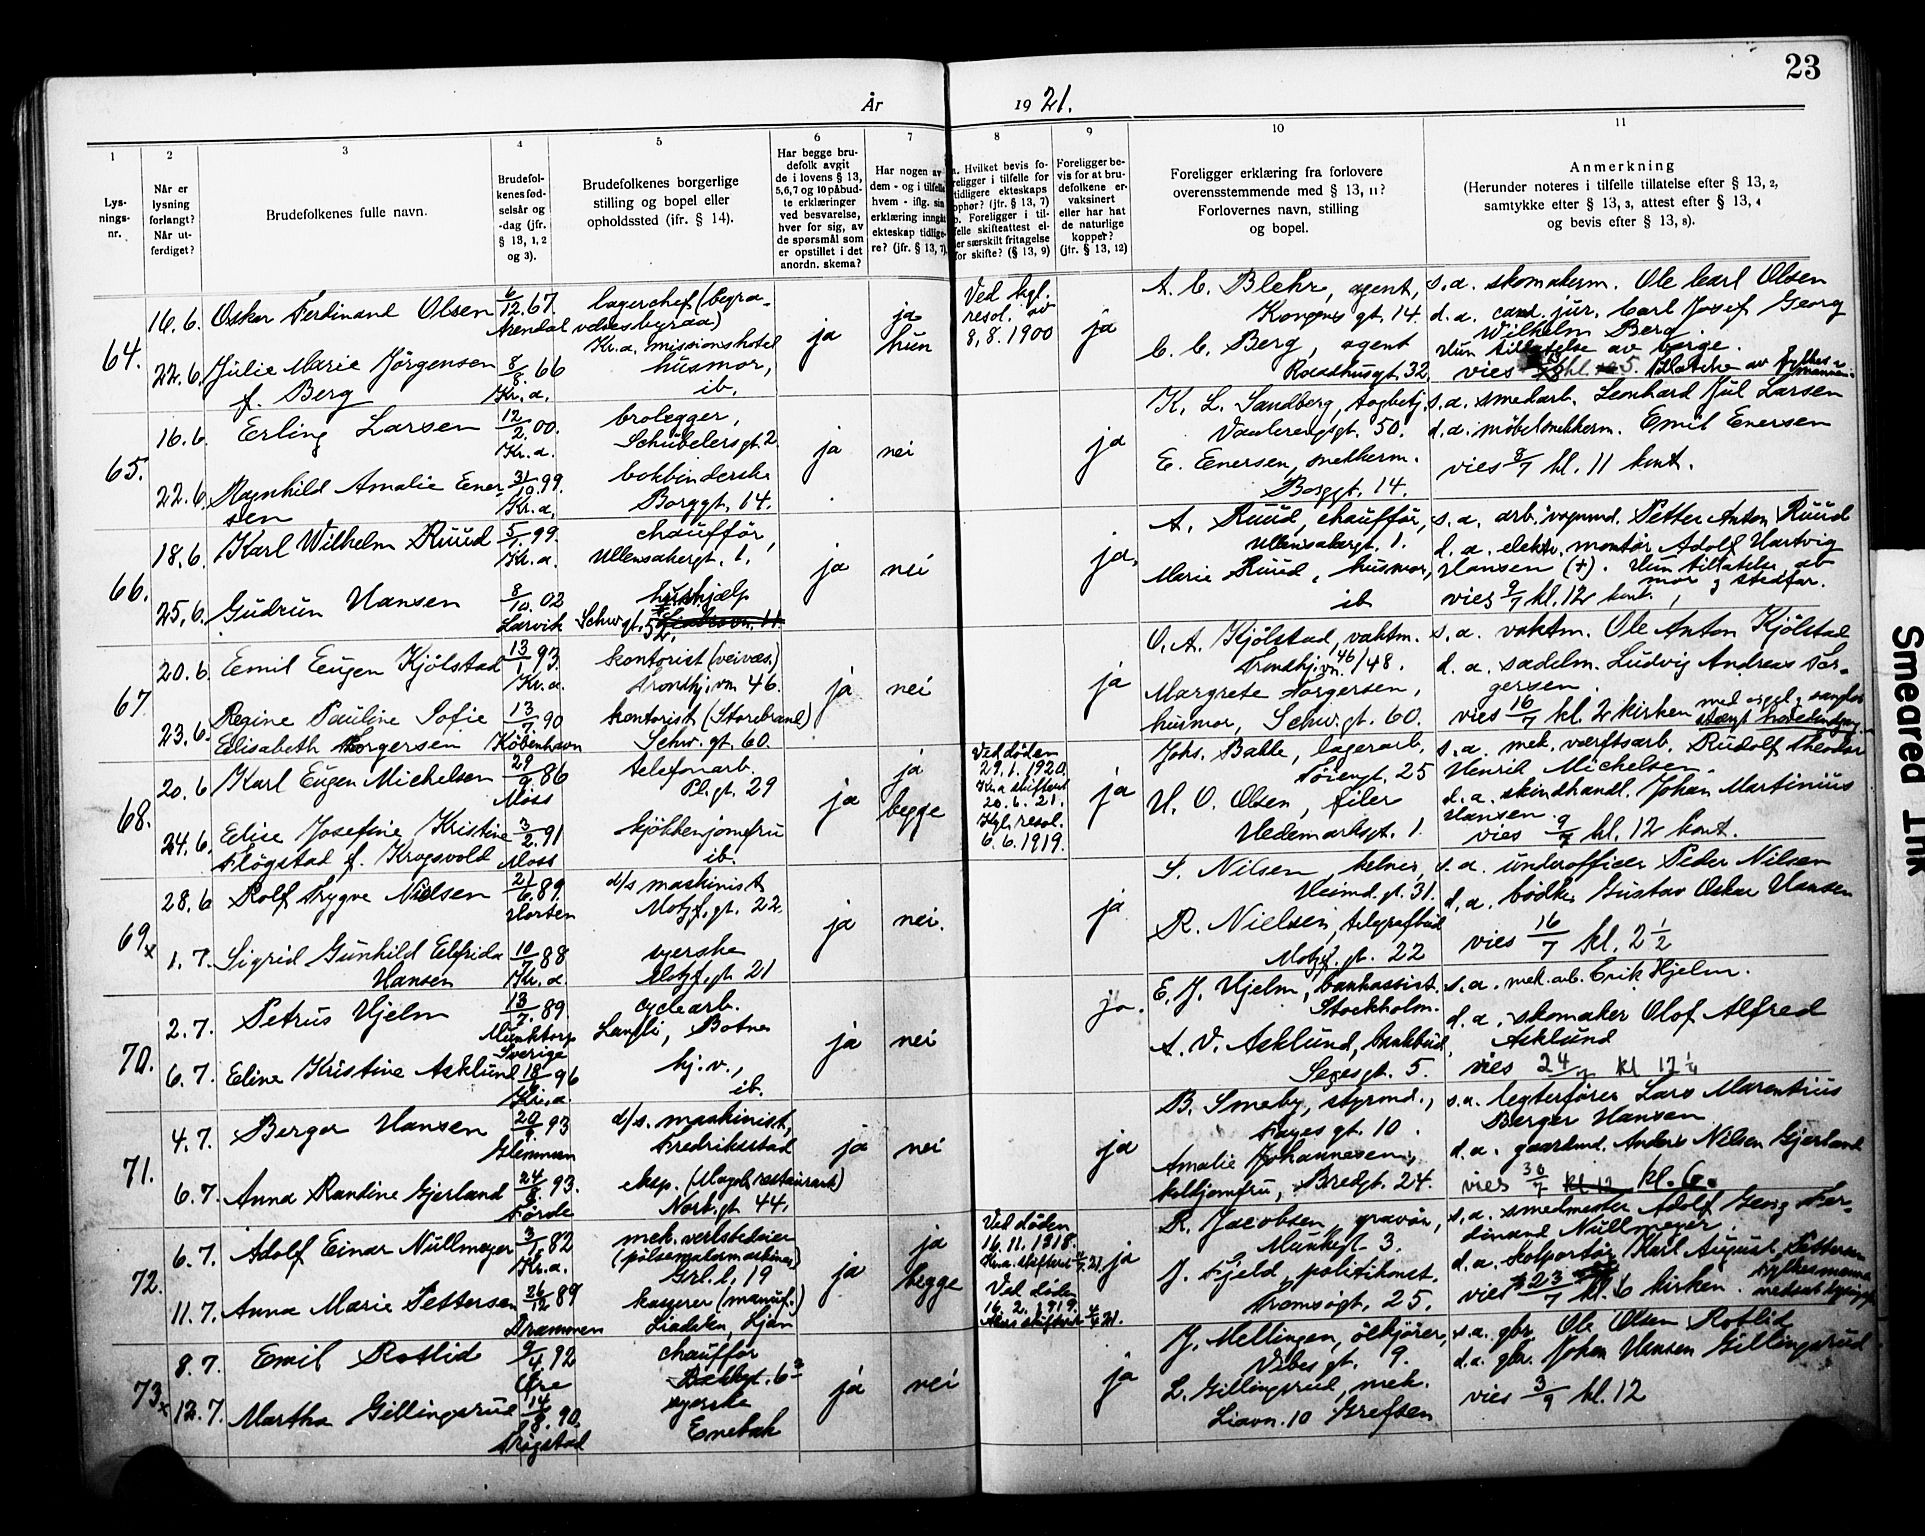 23
År 1921.
1 2 3 4 5 6 7 8 9 10 11
Lys-
nings-
nr.
Når er
lysning
forlangt?
Når ut-
ferdiget?
Brudefolkenes fulle navn.
Brudefol-
kenes fød-
selsår og
-dag (jfr.
§ 13, 1, 2
og 3).
Brudefolkenes borgerlige
stilling og bopel eller
opholdssted (jfr. § 14).
Har begge bru-
defolk avgit
de i lovens § 13,
5,6,7 og 10 påbud-
te erklæringer
ved besvarelse,
hver for sig, av
de spørsmål som
er opstillet i det
anordn. skema?
Har nogen av
dem - og i tilfelle
hvem - iflg. sin
erklæring inngått
ekteskap tidlige-
re? (jfr. § 13, 7)
a. Hvilket bevis fo-
religger i tilfelle for
tidligere ekteskaps
ophør? (jfr. § 13, 7)
b. Foreligger i til-
felle skifteattest el-
ler særskilt fritagelse
for skifte? (§ 13, 9)
Foreligger be-
vis for at bru-
defolkene er-
vaksinert
eller har hat
de naturlige
kopper?
(jfr. § 13, 12)
Foreligger erklæring fra forlovere
overensstemmende med § 13, 11?
Forlovernes navn, stilling
og bopel.
Anmerkning
(Herunder noteres i tilfelle tillatelse efter § 13, 2,
samtykke efter § 13, 3, attest efter § 13, 4
og bevis efter § 13, 8).
64.
16.6. Oskar Ferdinand Olsen 6/12.67. Arendal
lagerchef (begra-
velsesbyraa)
Kr.a. missionshotel
22.6. Julie Marie Jörgensen
f. Berg 8/8.66 Kr.a.
husmor,
ib.
ja
ja
hun
Ved kgl.
resol. av
8.8.1900
ja
A. C. Blehr, agent,
Kongens gt. 14.
C. C. Berg, agent
Raadhusgt. 32.
s.a. skomakerm. Ole Carl Olsen
d.a. cand. jur. Carl Josef Georg
Wilhelm Berg.
Hun tillatelse av verge.
vies kl. 5. tillatelse av fylkes-
mannen.
65.
16.6. Erling Larsen 12/2.00. Kr.a.
brolegger,
Schübelersgt. 2
22.6. Ragnhild Amalie Ener-
sen 31/10.99. Kr.a.
bokbinderske
Borggt. 14.
ja nei ja
K. L. Sandberg, togbetj.
Vaalerengsgt. 50.
E. Enersen, snekkerm.
Borggt. 14.
s.a. smedarb. Leonhard Jul Larsen
d.a. möbelsnekkerm. Emil Enersen
vies 8/7 kl. 11 kont.
66.
18.6. Karl Wilhelm Ruud 5/1.99. Kr.a.
chaufför,
Ullensakergt. 1.
25.6. Gudrun Hansen 8/10.02 Larvik
hushjælp
Schw. gt. 52.
ja nei ja.
A. Ruud, chaufför,
Ullensakergt. 1.
Marie Ruud, husmor,
ib
s.a. arb. vognmd. Petter Anton Ruud
d.a. elektr. montör Adolf Hartvig
Hansen (+). Hun tillatelse av
mor og stedfar.
vies 9/7 kl. 12 kont.
67
20.6. Emil Eugen Kjölstad 13/1.93. Kr.a.
kontorist (veivæs.)
Trondhj.vn. 46.
23.6. Regine Pauline Sofie
Elisabeth Torgersen 13/7.90 Köbenhavn
kontorist (Storebrand)
Schw. gt. 60.
ja nei ja
O. A. Kjölstad, vaktm.
Trondhj.vn. 46/48.
Margrete Torgersen,
husmor, Schw. gt. 60.
s.a. vaktm. Ole Anton Kjölstad
d.a. sadelm. Ludvig Andreas Tor-
gersen.
vies 16/7 kl. 2 kirken med orgel og sang
68.
20.6 Karl Eugen Michelsen 29/9.86 Moss
telefonarb.
Pl. gt. 29
24.6. Elise Josefine Kristine
Flögstad f. Krogsvold 3/2.91 Moss
kjökkenjomfru
ib.
ja
ja
begge
Ved döden
29.1.1920.
Kr.a. skifteret
20.6.21.
Kgl. resol.
6.6.1919.
ja
Johs. Bakke, lagerarb.
Töiengt. 25
H. O. Olsen, filer
Hedemarksgt. 1.
s.a. mek. værkstsarb. Rudolf Theodor
Henrik Michelsen.
d.a. skindhandl. Johan Martinius
Hansen.
vies 9/7 kl. 12 kont.
69x
28.6 Rolf Trygve Nielsen 21/6.89. Horten
d/s maskinist
Motzf. gt. 22.
1.7. Sigrid Gunhild Elfrida
Hansen 10/7.88 Kr.a.
syerske
Motzf. gt. 21
ja nei. ja
S. Nilsen, kelner,
Heimd. gt. 31.
R. Nielsen, telegrafbud
Motzf. gt. 22
s.a. underofficer Peder Nilsen
d.a. bödker Gustav Oskar Hansen
vies 16/7 kl. 2 1/2
70.
2.7. Petrus Hjelm 13/7.89. Munktorp
Sverige
cyclearb.
Langli, Botne
6.7. Eline Kristine Asklund 18/6.96 Kr.a.
hj.v.,
ib.
ja nei ja.
E. J. Hjelm, bankassist.
Stockholm.
A. V. Asklund, bankbud,
Seresgt. 5.
s.a. mek. arb. Erik Hjelm.
d.a. skomaker Olof Alfred
Asklund
vies 24/7 kl 12 1/4
71.
4.7. Berger Hansen 20/9.93 Glemmen
d/s. maskinist,
Fredrikstad
6.7. Anna Randine Gjerland 24/8.93. Förde
eksp. (Mogols restaurant)
Norb. gt 44.
ja nei ja
B. Smeby, styrmd.,
Fayes gt. 10.
Amalie Johannesen,
koldjomfru, Bredgt. 24.
s.a. legterförer Lars Marentius
Berger Hansen
d.a. gaardmd. Anders Nilsen Gjerland
vies 30/7 kl 12 kl. 6.
72.
6.7. Adolf Einar Nullmeyer 3/1.82 Kr.a.
mek. verkstedeier
(pölsemakermaskiner)
Grl. l. 19
11.7. Anna Marie Pettersen 26/12.89 Drammen
kasserer (manuf.)
Liabakken, Ljan
ja
ja
begge
Ved döden
16.11.1918.
Kr.a. skifteret 4/7.21.
Ved döden
16.2.1919.
Akers skifteret 4/7.21.
ja
R. Jacobsen, gravör,
Munkegt. 3.
J. Fjeld, politikonst.
Tromsögt. 25.
s.a. smedmester Adolf Georg Fer-
dinand Nullmeyer.
d.a. kolportör Karl August Pettersen
vies 23/7 kl. 6 kirken. fylkesmann
73x
8.7. Emil Rotlid 9/4.92 Öre
chaufför
Bakkgt. 6³
12.7. Martha Gillingsrud 14/8.90. Trögstad
syerske
Enebak
ja nei ja
J. Mellingen, ölkjörer,
Vibes gt. 9.
L. Gillingsrud, mek.
Liavn. 10 Grefsen
s.a. gbr. Ole Olsen Rotlid
d.a. gbr. Johan Hansen Gillingsrud
vies 3/9 kl. 12
Smeared Ink